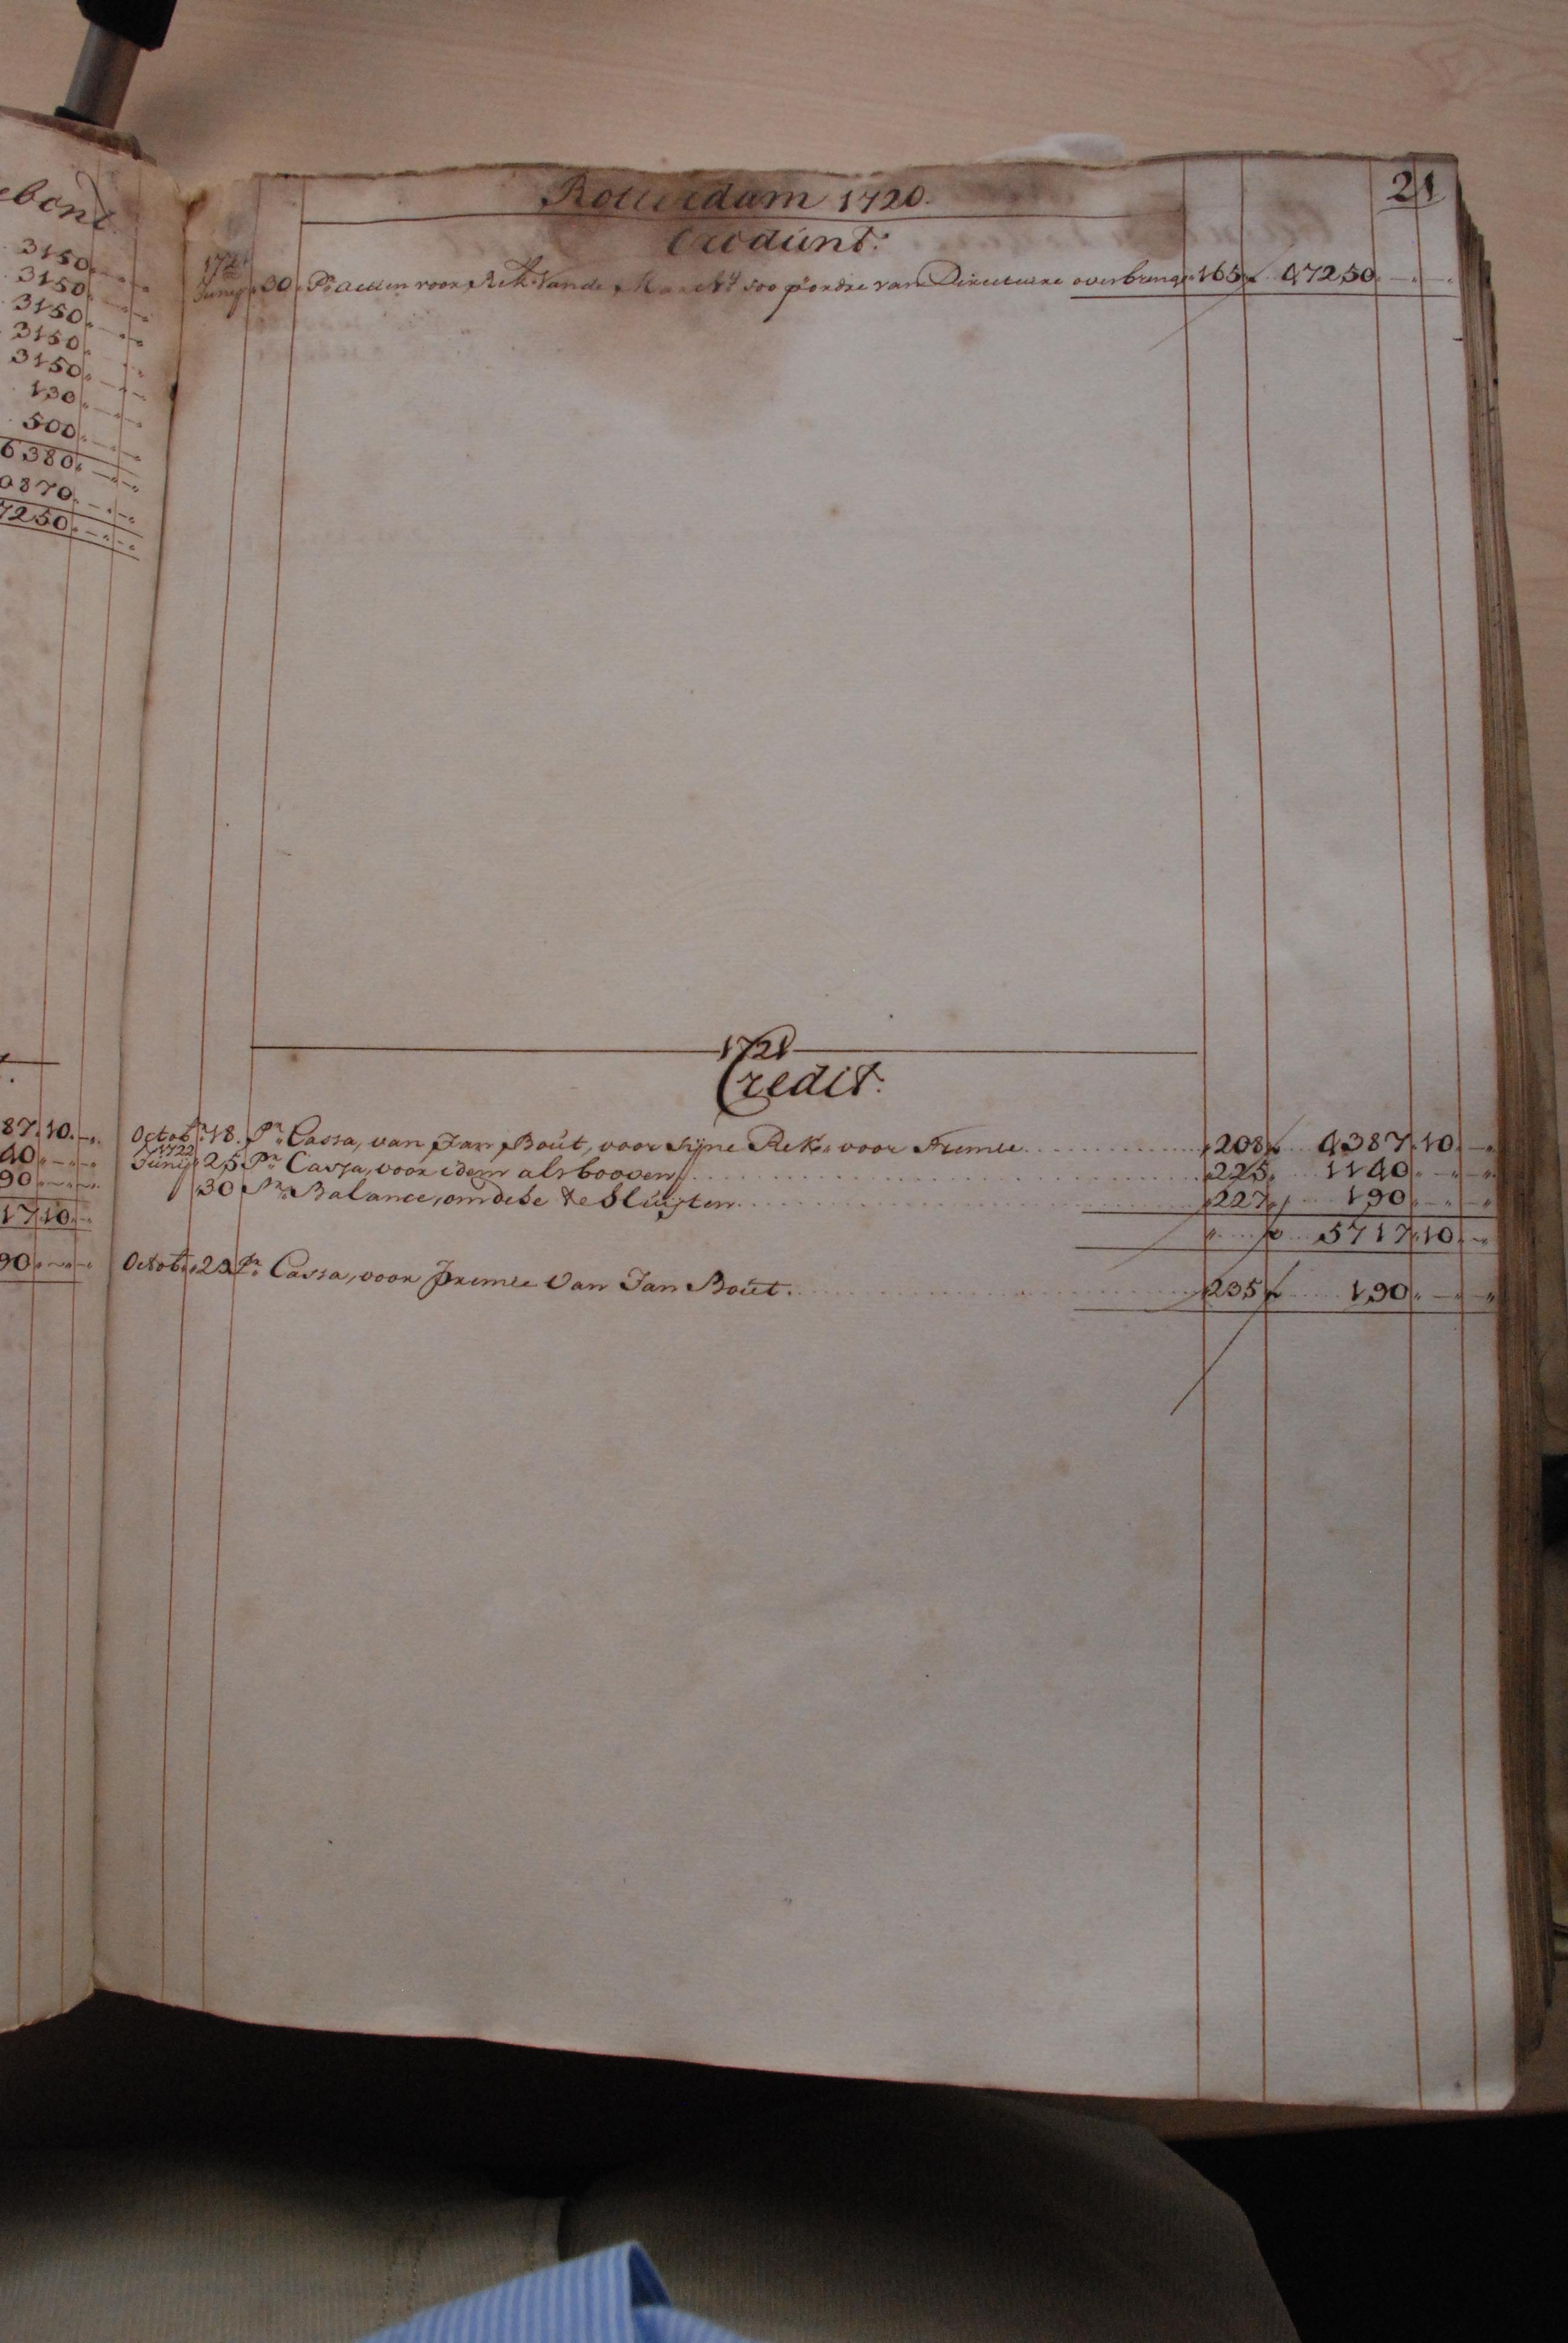 ebent
3150
3150
3150
3150
3150
130
500
6380
0870
7250
87 10
40
90
17 10
90
Rotterdam 1720. 21
Credunt.
1721
Juny 30 Pr. Actien voor Rek. Vande soo p ordre van Directeure overbrenge 165 47250
1721
Credit.
Octob. 18. Pr. Cassa, van Jan Boút, voor Sijne Rek. voor Premie 208 4387 10
1722
Juny 25 Pr. Cassa, voor idem als booven 225 1140
30 Pr. Balance, om dese te Sluijten 227 190
5717 10
Octob. 22 Pr. Cassa, voor Premie Van Jan Boút. 235 190